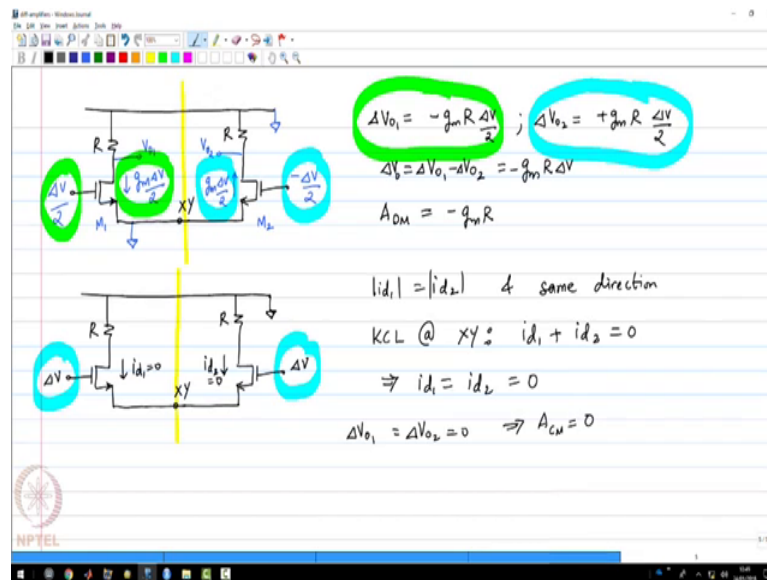 diff-amplifiers - Windows Journal
File Edit View Insert Actions Tools Help
B I
R
V₀₁
V₀₂
R
ΔV/2
↓ gₘΔV/2
gₘΔV/2 ↑
-ΔV/2
M₁
XY
M₂
ΔV₀₁ = -gₘR ΔV/2 ; ΔV₀₂ = +gₘR ΔV/2
ΔV₀ = ΔV₀₁ - ΔV₀₂ = -gₘRΔV
A_DM = -gₘR
R
R
ΔV
↓ id₁=0
id₂↓ =0
ΔV
XY
|id₁| = |id₂| & same direction
KCL @ XY: id₁ + id₂ = 0
⇒ id₁ = id₂ = 0
ΔV₀₁ = ΔV₀₂ = 0 ⇒ A_CM = 0
NPTEL